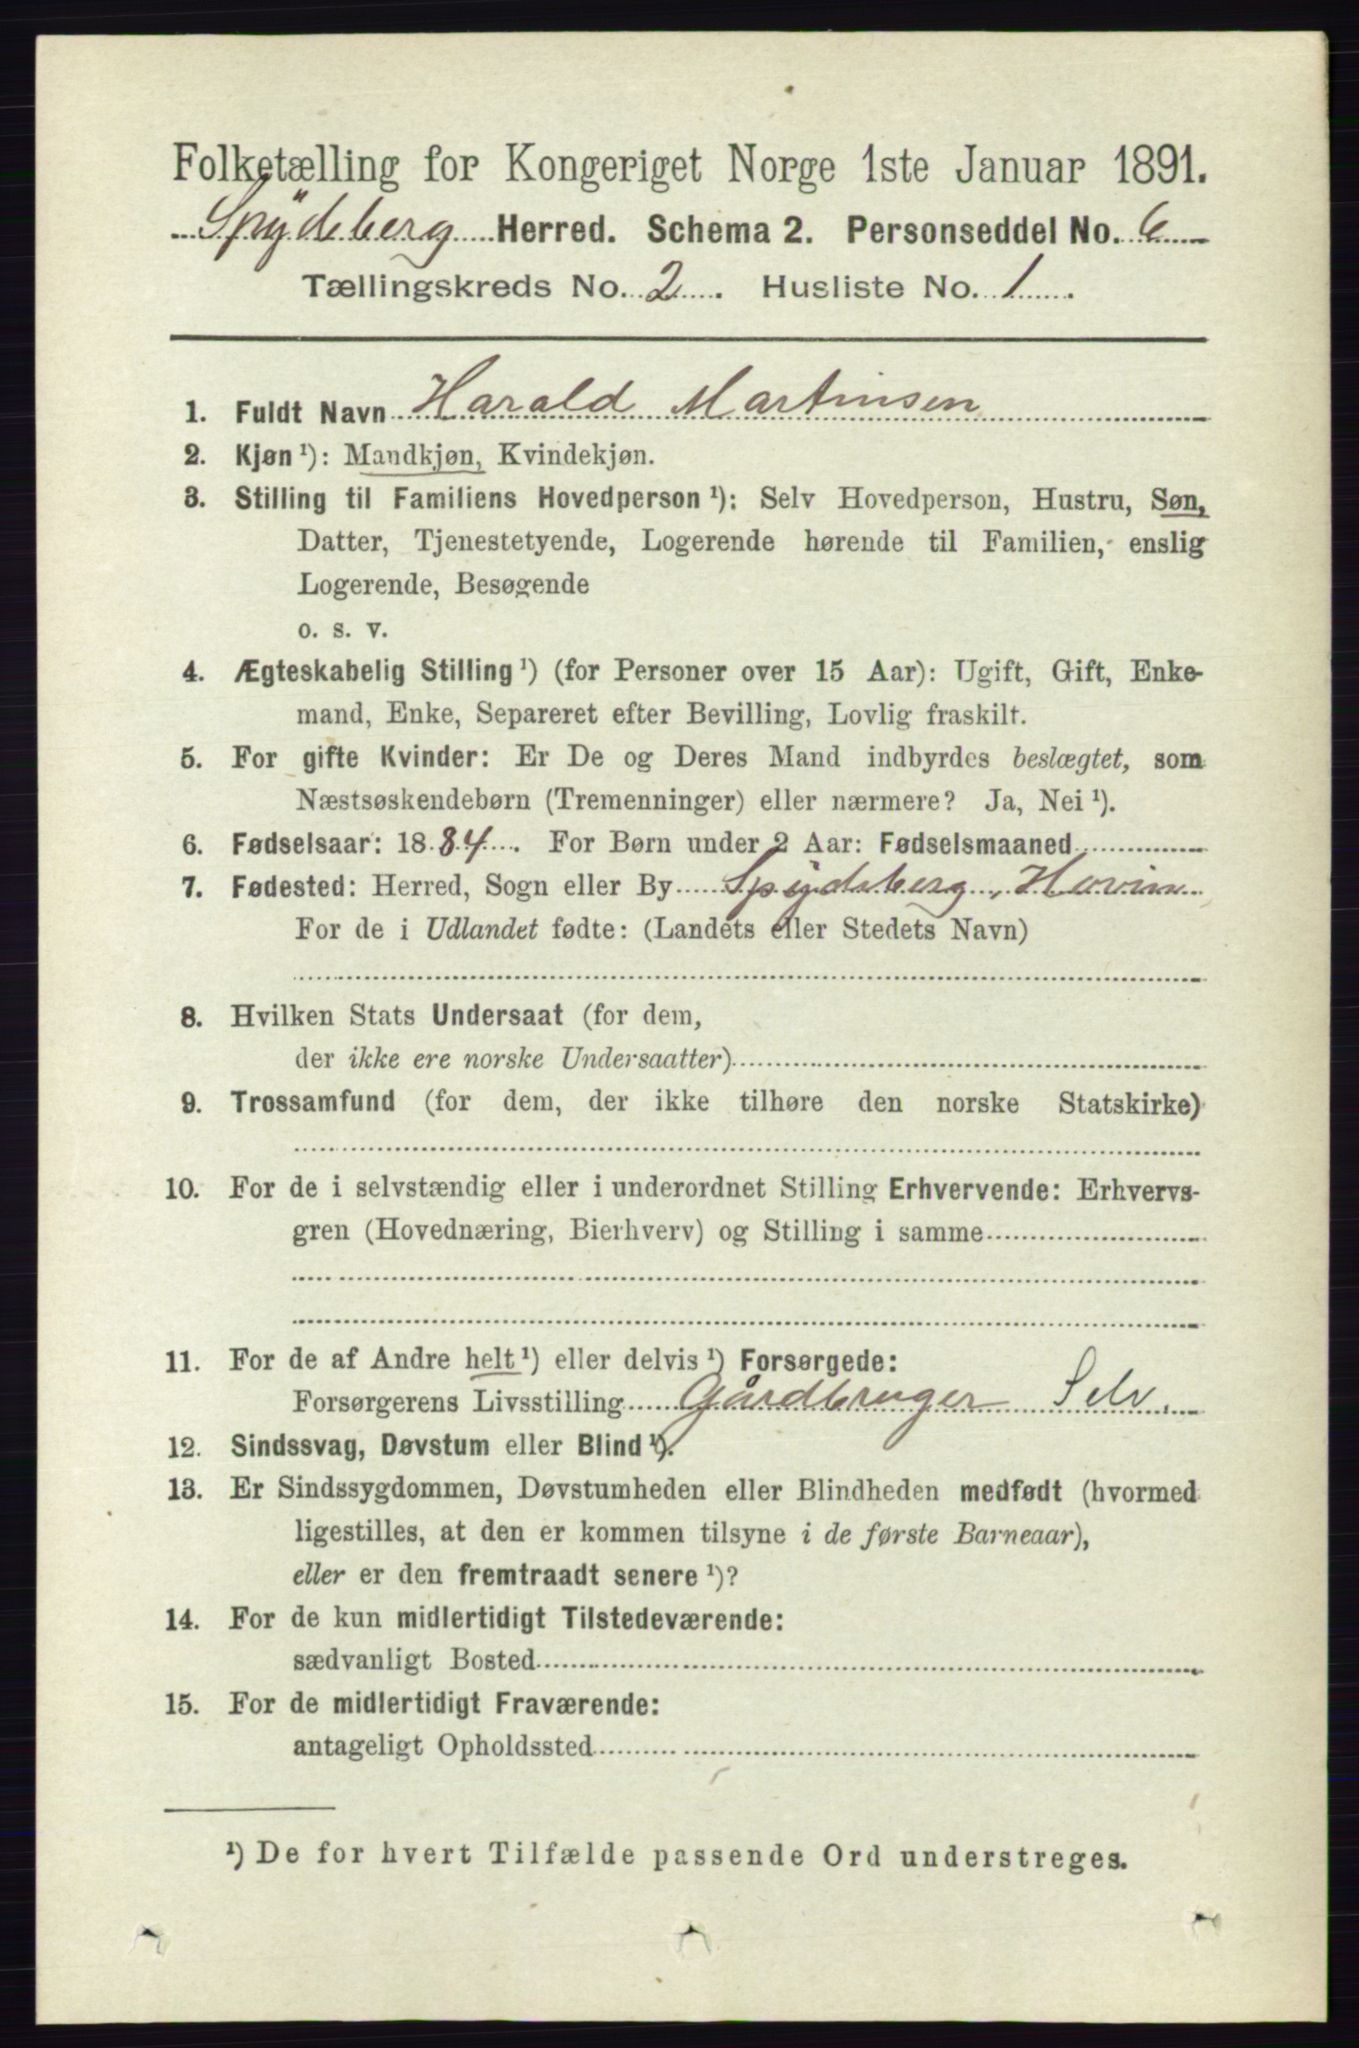 Folketælling for Kongeriget Norge 1ste Januar 1891.
Spydeberg Herred. Schema 2. Personseddel No. 6
Tællingskreds No. 2. Husliste No. 1.
1. Fuldt Navn Harald Martinsen
2. Kjøn ¹): Mandkjøn, Kvindekjøn.
3. Stilling til Familiens Hovedperson ¹): Selv Hovedperson, Hustru, Søn,
Datter, Tjenestetyende, Logerende hørende til Familien, enslig
Logerende, Besøgende
o. s. v.
4. Ægteskabelig Stilling ¹) (for Personer over 15 Aar): Ugift, Gift, Enke-
mand, Enke, Separeret efter Bevilling, Lovlig fraskilt.
5. For gifte Kvinder: Er De og Deres Mand indbyrdes beslægtet, som
Næstsøskendebørn (Tremenninger) eller nærmere? Ja, Nei ¹).
6. Fødselsaar: 1884. For Børn under 2 Aar: Fødselsmaaned
7. Fødested: Herred, Sogn eller By Spydeberg, Hovin
For de i Udlandet fødte: (Landets eller Stedets Navn)
8. Hvilken Stats Undersaat (for dem,
der ikke ere norske Undersaatter)
9. Trossamfund (for dem, der ikke tilhøre den norske Statskirke)
10. For de i selvstændig eller i underordnet Stilling Erhvervende: Erhvervs-
gren (Hovednæring, Bierhverv) og Stilling i samme
11. For de af Andre helt ¹) eller delvis ¹) Forsørgede:
Forsørgerens Livsstilling Gårdbruger Selv.
12. Sindssvag, Døvstum eller Blind ¹).
13. Er Sindssygdommen, Døvstumheden eller Blindheden medfødt (hvormed
ligestilles, at den er kommen tilsyne i de første Barneaar),
eller er den fremtraadt senere ¹)?
14. For de kun midlertidigt Tilstedeværende:
sædvanligt Bosted
15. For de midlertidigt Fraværende:
antageligt Opholdssted
¹) De for hvert Tilfælde passende Ord understreges.